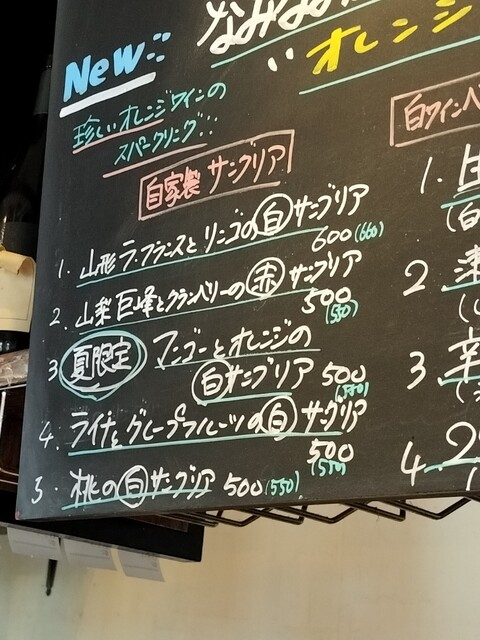 なみなみ
New
オレンジ
珍しいオレンジワインの
スパークリング
自家製 サングリア
1. 山形ラ・フランスとリンゴの白サングリア
600(660)
2. 山梨巨峰とクランベリーの赤サングリア
500
(550)
3 夏限定 マンゴーとオレンジの
白サングリア 500
(550)
4. ライチとグレープフルーツの白サングリア
500
(550)
5. 桃の白サングリア 500(550)
白ワインベ
1.
(白
2
3 辛
4 2